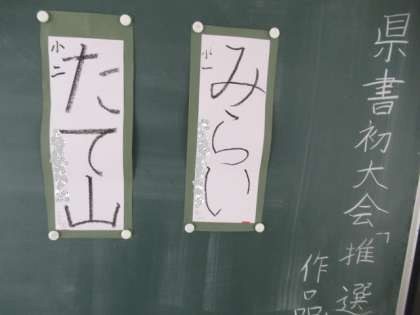 県書初大会「推選
作品
みらい
小一
たて山
小二